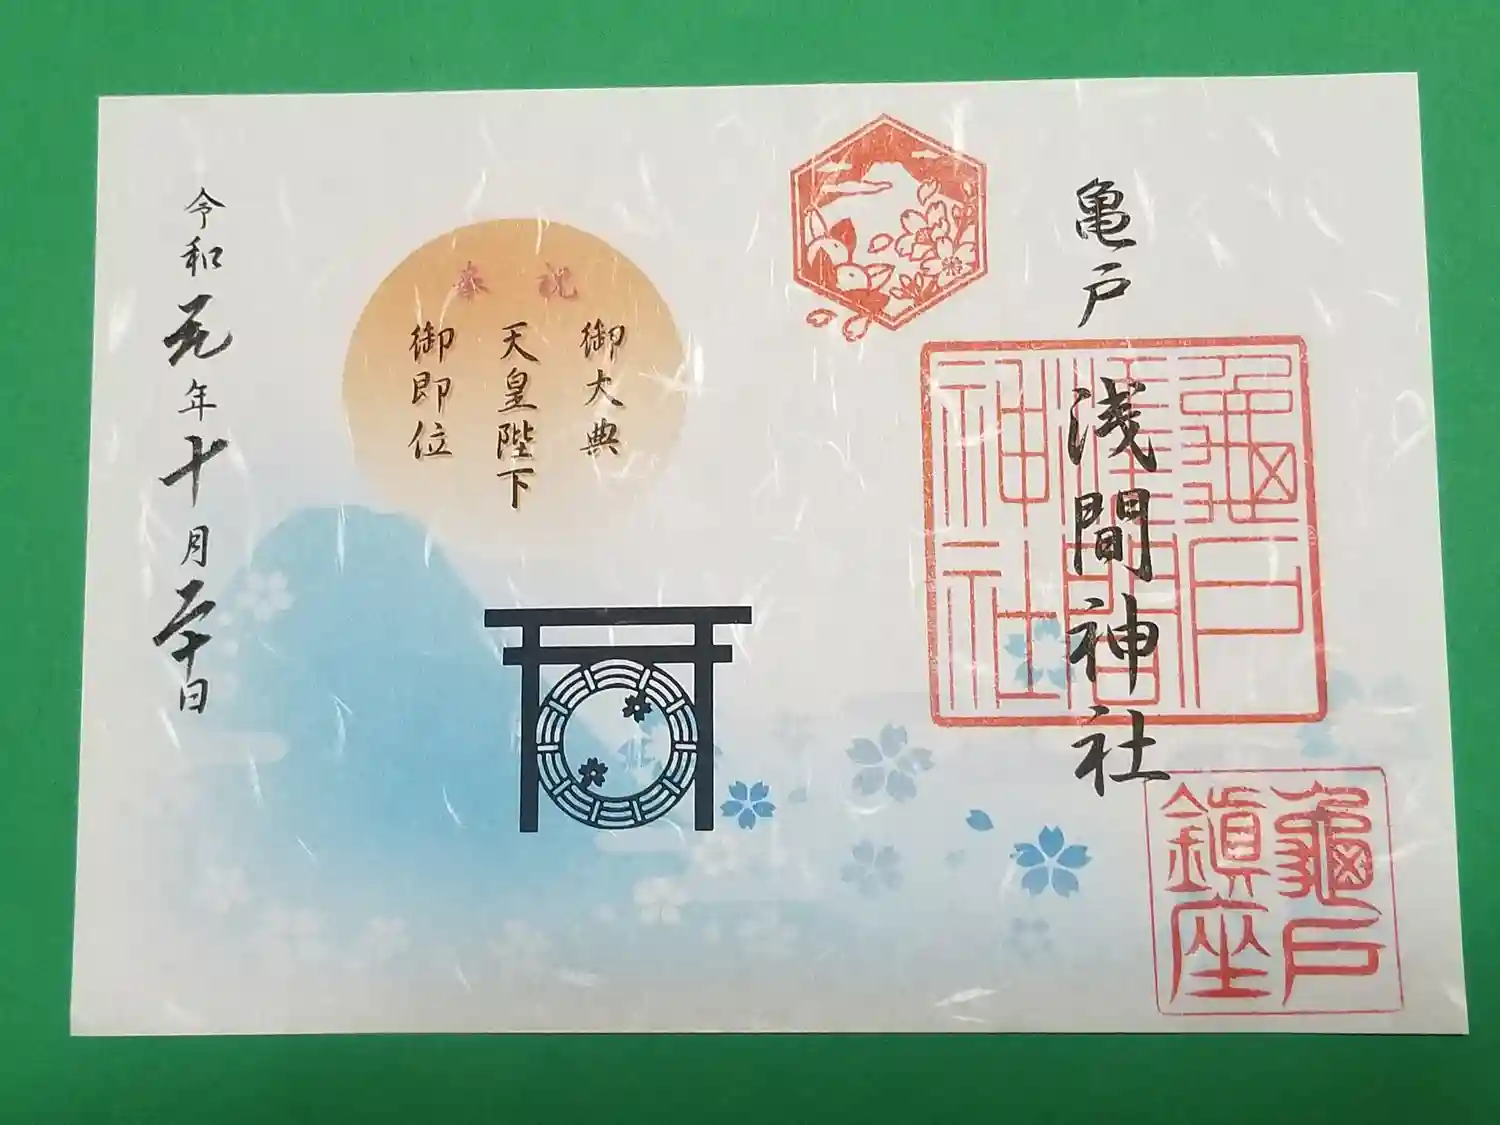 亀戸
浅間神社
龜戸
浅間
神社
龜戸
鎮座
奉祝
御大典
天皇陛下
御即位
令和元年十月二十日